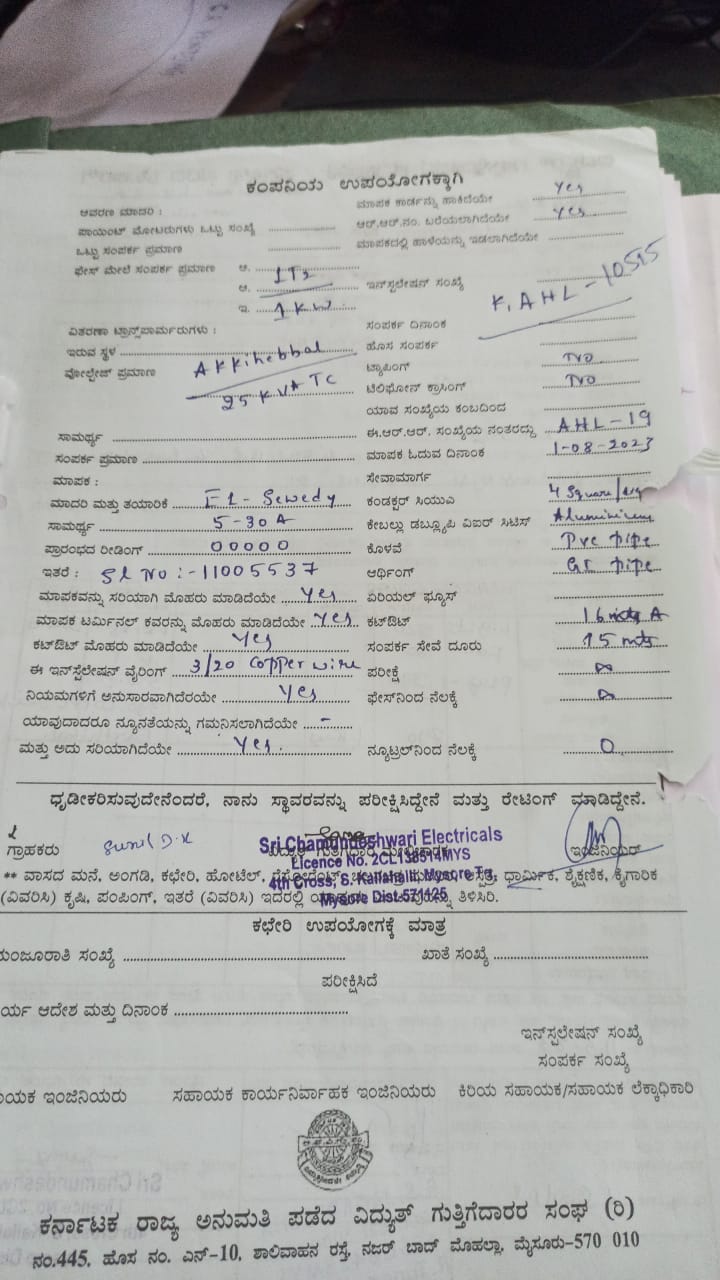 ಕಂಪನಿಯ ಉಪಯೋಗಕ್ಕಾಗಿ
ಆವರಣ ಮಾದರಿ :
ಮಾಪಕ ಕಾರ್ಡನ್ನು ಹಾಕಿದೆಯೇ Yes
ಪಾಯಿಂಟ್ ಮೋಟರುಗಳು ಒಟ್ಟು ಸಂಖ್ಯೆ
ಆರ್.ಆರ್.ನಂ. ಬರೆಯಲಾಗಿದೆಯೇ Yes
ಒಟ್ಟು ಸಂಪರ್ಕ ಪ್ರಮಾಣ
ಮಾಪಕದಲ್ಲಿ ಹಾಳೆಯನ್ನು ಇಡಲಾಗಿದೆಯೇ
ಫೇಸ್ ಮೇಲೆ ಸಂಪರ್ಕ ಪ್ರಮಾಣ ಅ.
ಆ.
ಇನ್‌ಸ್ಟಲೇಷನ್ ಸಂಖ್ಯೆ K, AHL-10515
ಇ. 1 KW
ವಿತರಣಾ ಟ್ರಾನ್ಸ್‌ಫಾರ್ಮರುಗಳು :
ಸಂಪರ್ಕ ದಿನಾಂಕ
ಇರುವ ಸ್ಥಳ Akkihebbal
ಹೊಸ ಸಂಪರ್ಕ
ವೋಲ್ಟೇಜ್ ಪ್ರಮಾಣ 25 KVA TC
ಟ್ಯಾಪಿಂಗ್ NO
ಟೆಲಿಫೋನ್ ಕ್ರಾಸಿಂಗ್ NO
ಯಾವ ಸಂಖ್ಯೆಯ ಕಂಬದಿಂದ
ಸಾಮರ್ಥ್ಯ
ಈ.ಆರ್.ಆರ್. ಸಂಖ್ಯೆಯ ನಂತರದ್ದು AHL-19
ಸಂಪರ್ಕ ಪ್ರಮಾಣ
ಮಾಪಕ ಓದುವ ದಿನಾಂಕ 1-08-2023
ಮಾಪಕ :
ಸೇವಾಮಾರ್ಗ
ಮಾದರಿ ಮತ್ತು ತಯಾರಿಕೆ El-Sewedy
ಕಂಡಕ್ಟರ್ ಸಿಯುವಿ 4 Square
ಸಾಮರ್ಥ್ಯ 5-30A
ಕೇಬಲ್ಲು ಡಬ್ಲ್ಯೂಪಿ ವಿಐರ್ ಸಿಟಿಸ್ Aluminium
ಪ್ರಾರಂಭದ ರೀಡಿಂಗ್ 00000
ಕೊಳವೆ Pvc pipe
ಇತರೆ : Sl No :-11005537
ಆರ್ಥಿಂಗ್ GI pipe
ಮಾಪಕವನ್ನು ಸರಿಯಾಗಿ ಮೊಹರು ಮಾಡಿದೆಯೇ Yes
ಏರಿಯಲ್ ಫ್ಯೂಸ್
ಮಾಪಕ ಟರ್ಮಿನಲ್ ಕವರನ್ನು ಮೊಹರು ಮಾಡಿದೆಯೇ Yes
ಕಟ್‌ಔಟ್ 16 A
ಕಟ್‌ಔಟ್ ಮೊಹರು ಮಾಡಿದೆಯೇ Yes
ಸಂಪರ್ಕ ಸೇವೆ ದೂರು 15 mts
ಈ ಇನ್‌ಸ್ಟಲೇಷನ್ ವೈರಿಂಗ್ 3/20 Copper wire
ಪರೀಕ್ಷೆ ∞
ನಿಯಮಗಳಿಗೆ ಅನುಸಾರವಾಗಿದೆರಯೇ Yes
ಫೇಸ್‌ನಿಂದ ನೆಲಕ್ಕೆ ∞
ಯಾವುದಾದರೂ ನ್ಯೂನತೆಯನ್ನು ಗಮನಿಸಲಾಗಿದೆಯೇ -
ಮತ್ತು ಅದು ಸರಿಯಾಗಿದೆಯೇ Yes.
ನ್ಯೂಟ್ರಲ್‌ನಿಂದ ನೆಲಕ್ಕೆ 0
ಧೃಡೀಕರಿಸುವುದೇನೆಂದರೆ, ನಾನು ಸ್ಥಾವರವನ್ನು ಪರೀಕ್ಷಿಸಿದ್ದೇನೆ ಮತ್ತು ರೇಟಿಂಗ್ ಮಾಡಿದ್ದೇನೆ.
ಗ್ರಾಹಕರು Sunil D.K
Sri Chamundeshwari Electricals
Licence No. 2CL138514MYS
4th Cross, S. Kallahalli, Mysore Tq,
Mysore Dist-571125
ಇಂಜಿನಿಯರ್
** ವಾಸದ ಮನೆ, ಅಂಗಡಿ, ಕಛೇರಿ, ಹೋಟೆಲ್, ಧಾರ್ಮಿಕ, ಶೈಕ್ಷಣಿಕ, ಕೈಗಾರಿಕ
(ವಿವರಿಸಿ) ಕೃಷಿ, ಪಂಪಿಂಗ್, ಇತರೆ (ವಿವರಿಸಿ) ಇದರಲ್ಲಿ ತಿಳಿಸಿರಿ.
ಕಛೇರಿ ಉಪಯೋಗಕ್ಕೆ ಮಾತ್ರ
ಮಂಜೂರಾತಿ ಸಂಖ್ಯೆ
ಖಾತೆ ಸಂಖ್ಯೆ
ಪರೀಕ್ಷಿಸಿದೆ
ರ್ಯ ಆದೇಶ ಮತ್ತು ದಿನಾಂಕ
ಇನ್‌ಸ್ಪಲೇಷನ್ ಸಂಖ್ಯೆ
ಸಂಪರ್ಕ ಸಂಖ್ಯೆ
ಾಯಕ ಇಂಜಿನಿಯರು ಸಹಾಯಕ ಕಾರ್ಯನಿರ್ವಾಹಕ ಇಂಜಿನಿಯರು ಕಿರಿಯ ಸಹಾಯಕ/ಸಹಾಯಕ ಲೆಕ್ಕಾಧಿಕಾರಿ
ಕರ್ನಾಟಕ ರಾಜ್ಯ ಅನುಮತಿ ಪಡೆದ ವಿದ್ಯುತ್ ಗುತ್ತಿಗೆದಾರರ ಸಂಘ (ರಿ)
ನಂ.445, ಹೊಸ ನಂ. ಎನ್-10, ಶಾಲಿವಾಹನ ರಸ್ತೆ, ನಜರ್ ಬಾದ್ ಮೊಹಲ್ಲಾ, ಮೈಸೂರು-570 010